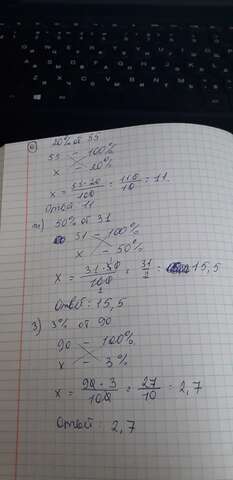 е) 20% от 55
55 – 100%
x – 20%
x = 55·20/100 = 110/10 = 11
Ответ 11
ж) 50% от 31
31 – 100%
x – 50%
x = 31·50/100 = 31/2 = 15,5
Ответ: 15,5
з) 3% от 90
90 – 100%
x – 3%
x = 90·3/100 = 27/10 = 2,7
Ответ: 2,7